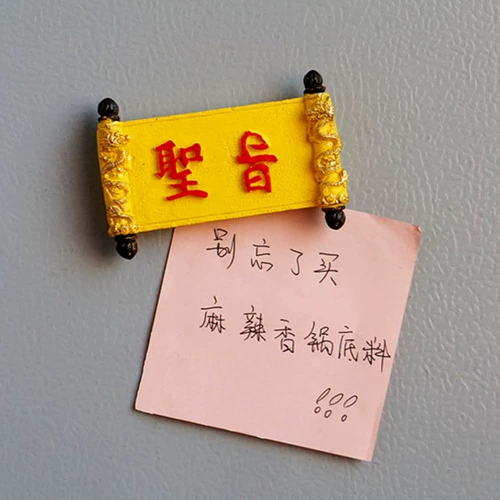 聖旨
别忘了买
麻辣香锅底料
!!!